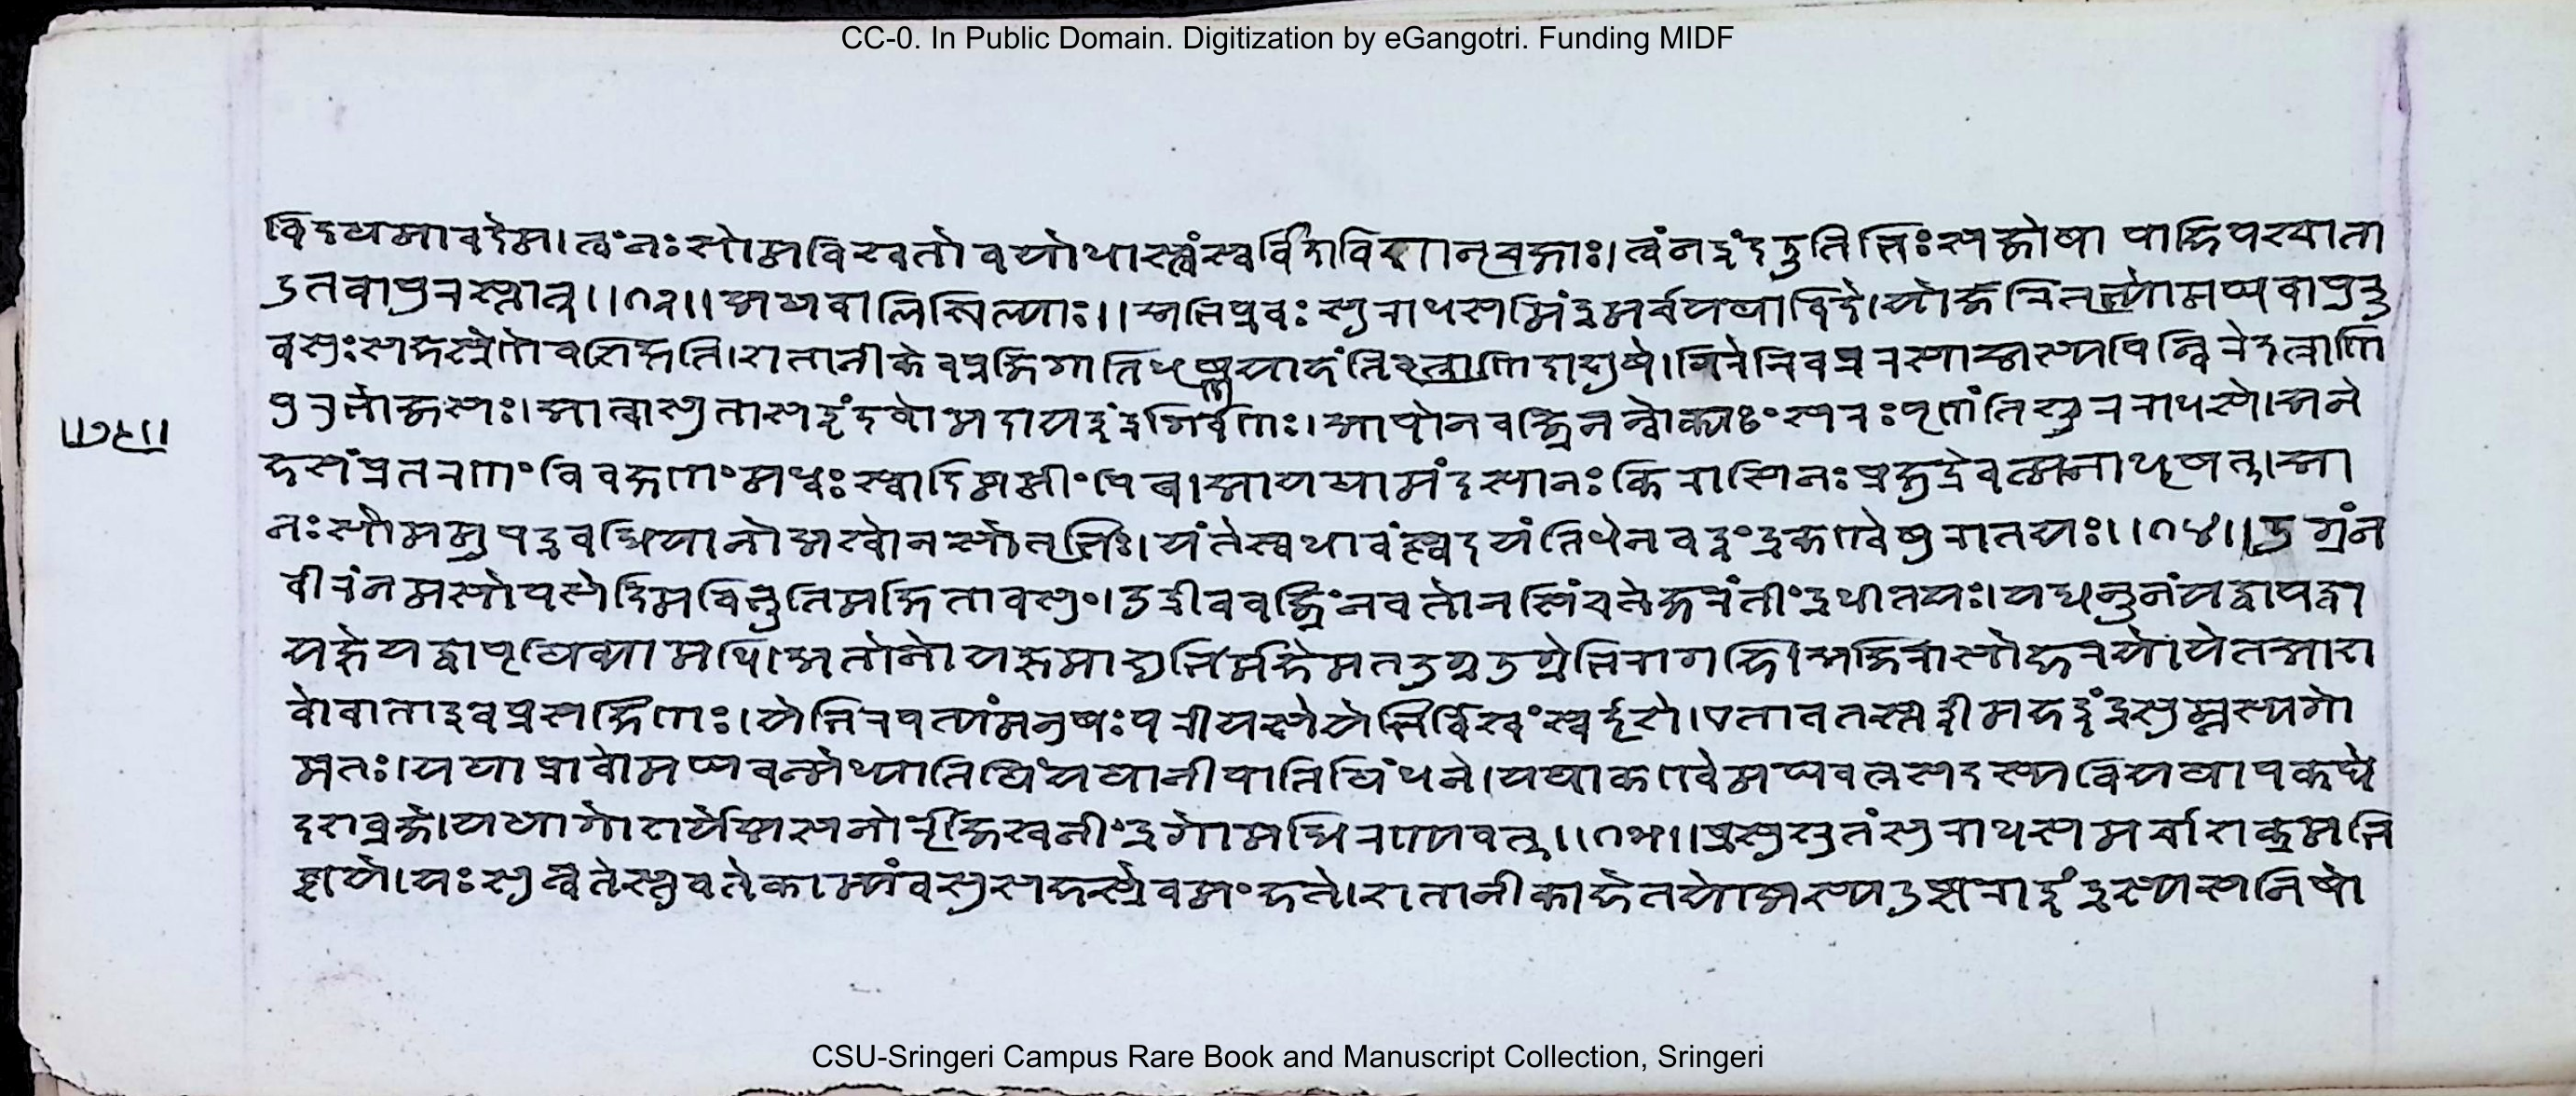 CC-0. In Public Domain. Digitization by eGangotri. Funding MIDF
विदथमावदेम। त्वंनःसोमविश्वतोवयोधास्त्वंस्वर्विदाविशानृचक्षाः। त्वंनइंदऊतिभिःसजोषा पाहिपश्चाता
उतवापुरस्तात्॥१३॥अथवालखिल्याः॥अभिप्रवः सुराधसमिंद्रमर्चयथाविदे।योजरितृभ्योमघवापुरू
वसुःसहस्रेणेवशिक्षति।शतानीकेवप्रजिगातिधृष्णुयाहंतिवृत्राणिदाशुषे।गिरेरिवप्ररसाअस्यपिन्विरेदत्राणि
पुरुभोजसः।आत्वासुतासइंदवोमदायइंद्रगिर्वणः।आपोनवज्रिन्नन्वोक्यंसरःपृणंतिशूरराधसे।अने
हसंप्रतरणंविवक्षणंमध्वःस्वादिष्ठमींपिब।आयथामंदसानःकिरासिनःप्रक्षुद्रेवत्मनाधृषत्।आ
नःस्तोममुपद्रवद्धियानोअश्वोनसोतृभिः।यंतेस्वधावंत्स्वदयंतिधेनवइंद्रकण्वेषुरातयः॥१४॥उग्रंन
वीरंनमसोपसेदिमविभूतिमक्षितावसुं।उद्रीववज्रिंनवतोनसिंचतेक्षरंतींद्रधीतयः।यद्धनूनंयद्वायद्वा
यज्ञेयद्वापृथिव्यामधि।अतोनोयज्ञमाशुभिर्महेमतउग्रउग्रेभिरागहि।अजिरासोहरयोयेतआश
वोवाताइवप्रसक्षिणः।येभिरपत्यंमनुषःपरीयसेयेभिर्विश्वंस्वर्दृशे।एतावतस्तईमहइंद्रसुम्नस्यगो
मतः।यथाप्रावोमघवन्मेध्यातिथिंयथानीपातिथिंधने।यथाकण्वेमघवत्रसदस्यवियथापक्थे
दशव्रजे।यथागोशर्येअसनोरृजिश्वनींद्रगोमद्धिरण्यवत्॥१५॥प्रसुश्रुतंसुराधसमर्चाशक्रमभि
ष्टये।यःसुन्वतेस्तुवतेकाम्यंवसुसहस्रेवमंहते।शतानीकाहेतयोअस्यदुष्टराइंद्रस्यसमिषो
CSU-Sringeri Campus Rare Book and Manuscript Collection, Sringeri